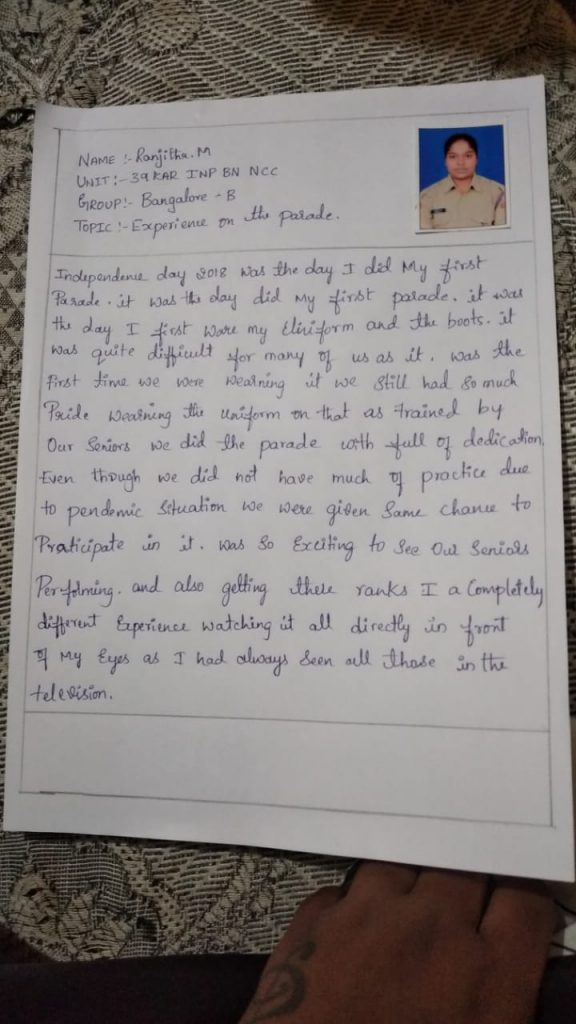 NAME :- Ranjitha.M
UNIT :- 39 KAR INP BN NCC
GROUP:- Bangalore - B
TOPIC :- Experience on the parade.
Independence day 2018 was the day I did My first
Parade. it was the day did My first parade. it was
the day I first ware my Uniform and the boots. it
was quite difficult for many of us as it. was the
First time we were wearning it we still had so much
Pride wearning the uniform on that as trained by
Our Seniors we did the parade with full of dedication.
Even though we did not have much of practice due
to pendemic Situation we were given Same chance to
Praticipate in it. was So Exciting to See Our Seniors
Performing. and also getting there ranks I a Completely
different Experience watching it all directly in front
of My Eyes as I had always Seen all those in the
television.